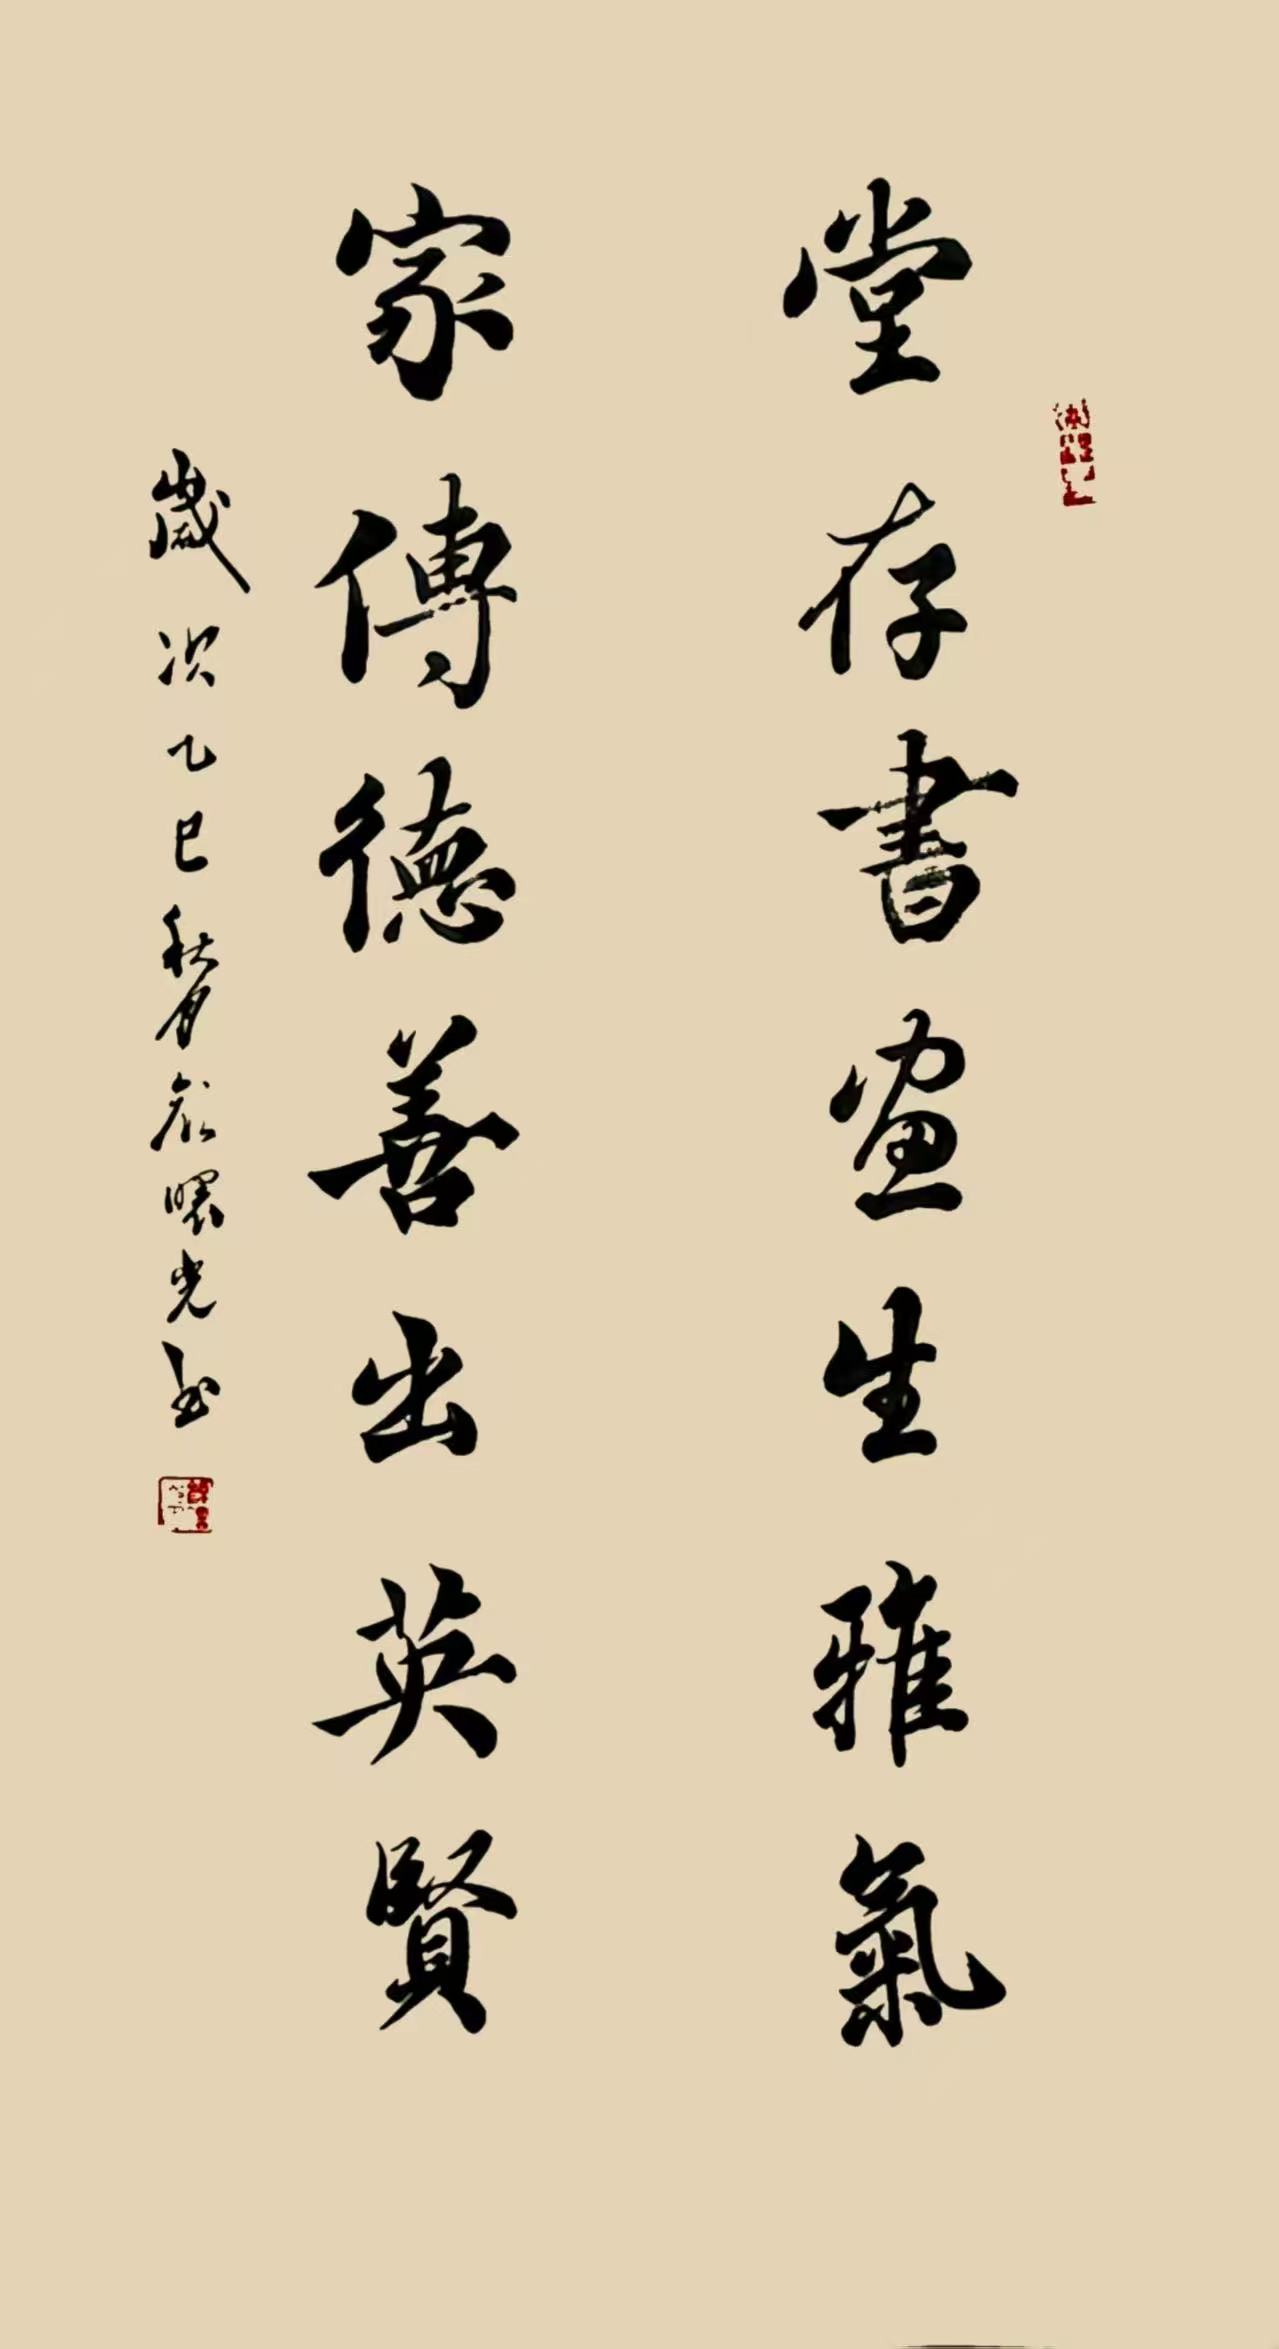 堂存書畫生雅氣
家傳德善出英賢
歲次乙巳秋月 曙光書